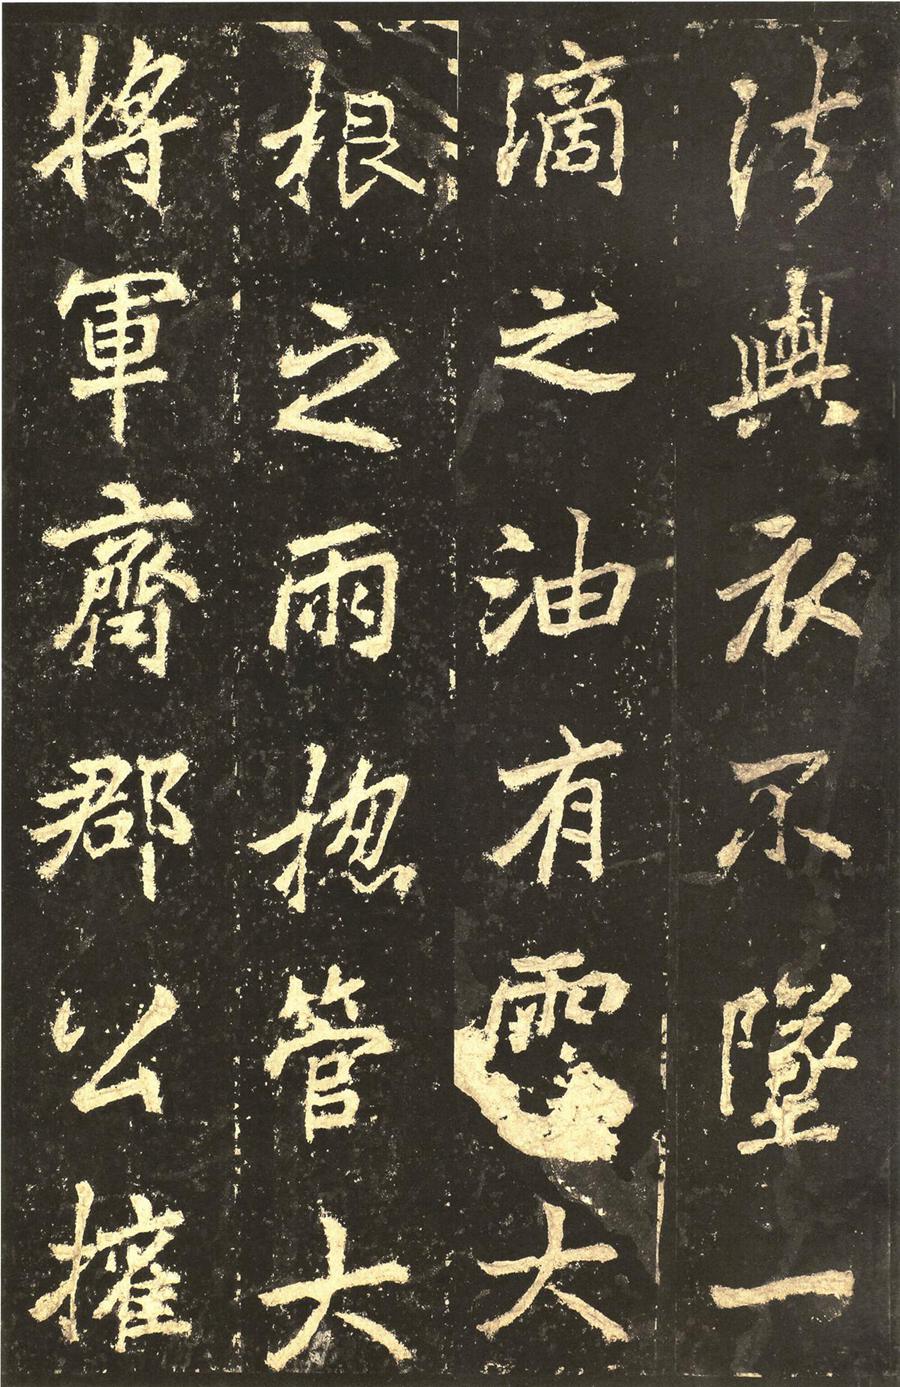 法與衣不墜一
滴之油有大
根之雨揔管大
將軍齊郡公權